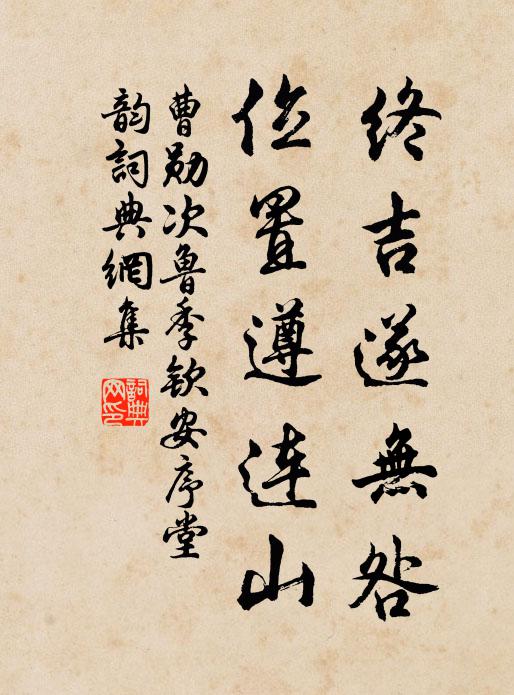 終吉遂無咎
位置遵連山
曹勛次魯季欽安序堂
韵詞典網集
詞典網印